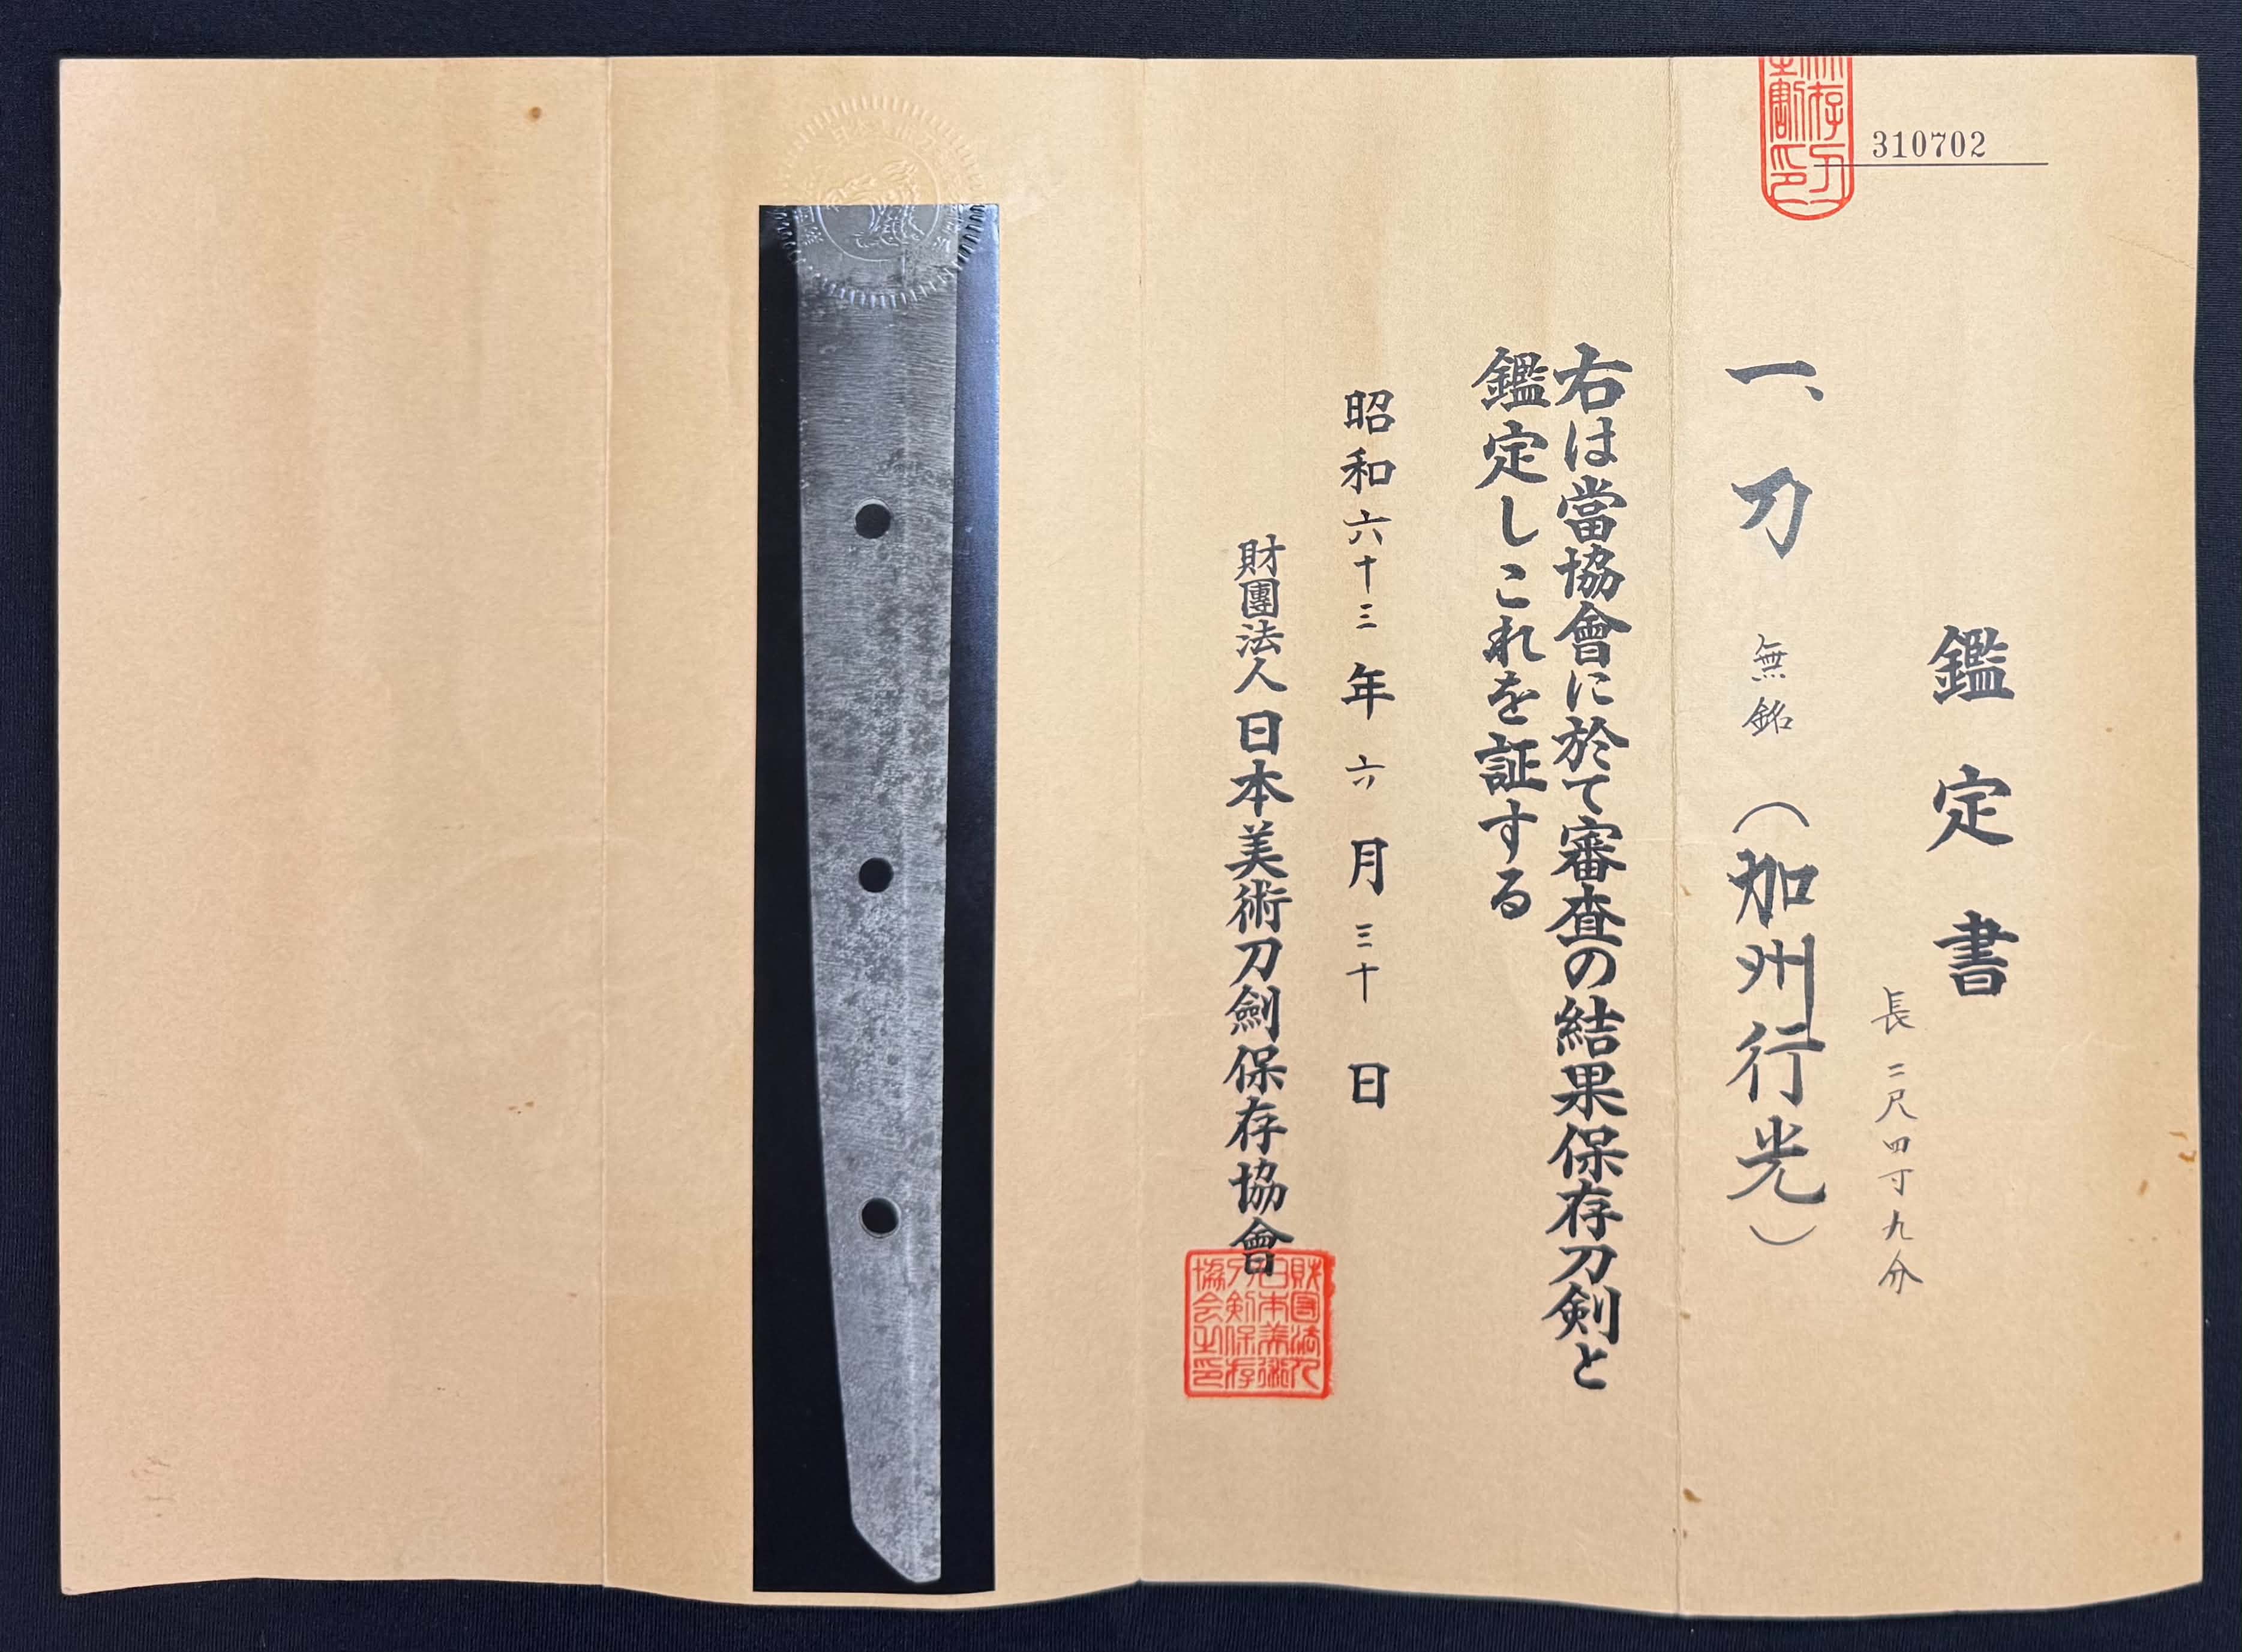 310702
鑑定書
長二尺四寸九分
一、刀 無銘(加州行光)
右は當協會に於て審査の結果保存刀剣と
鑑定しこれを証する
昭和六十三年六月三十日
財團法人日本美術刀劍保存協會
財団法人
日本美術
刀剣保存
協会之印